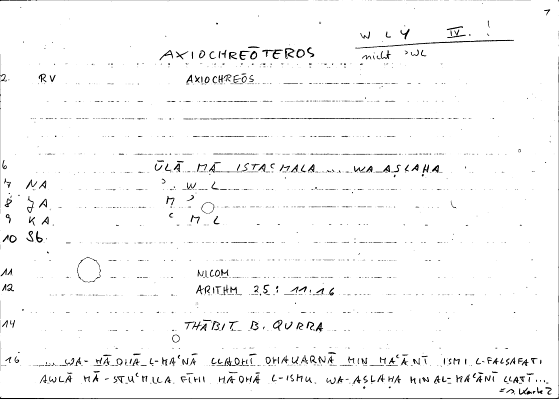 7
WLY IV.!
nicht ʾWL
AXIOCHREŌTEROS
2 RV AXIOCHREŌS
6 ŪLĀ MĀ ISTAʿMALA ... WA AṢLAḤA
7 NA ʾ W L
8 YA M ʾ
9 KA ʿ M L
10 Sb.
11 NICOM
12 ARITHM 2,5 : 11.16
14 THĀBIT B. QURRA
16 ... WA-HĀDHĀ L-MAʿNĀ LLADHĪ DHAKARNĀ MIN MAʿĀNĪ ISMI L-FALSAFATI
AWLĀ MĀ -STUʿMILA FĪHI HĀDHĀ L-ISMU WA-AṢLAḤA MIN AL-MAʿĀNĪ LLATĪ...